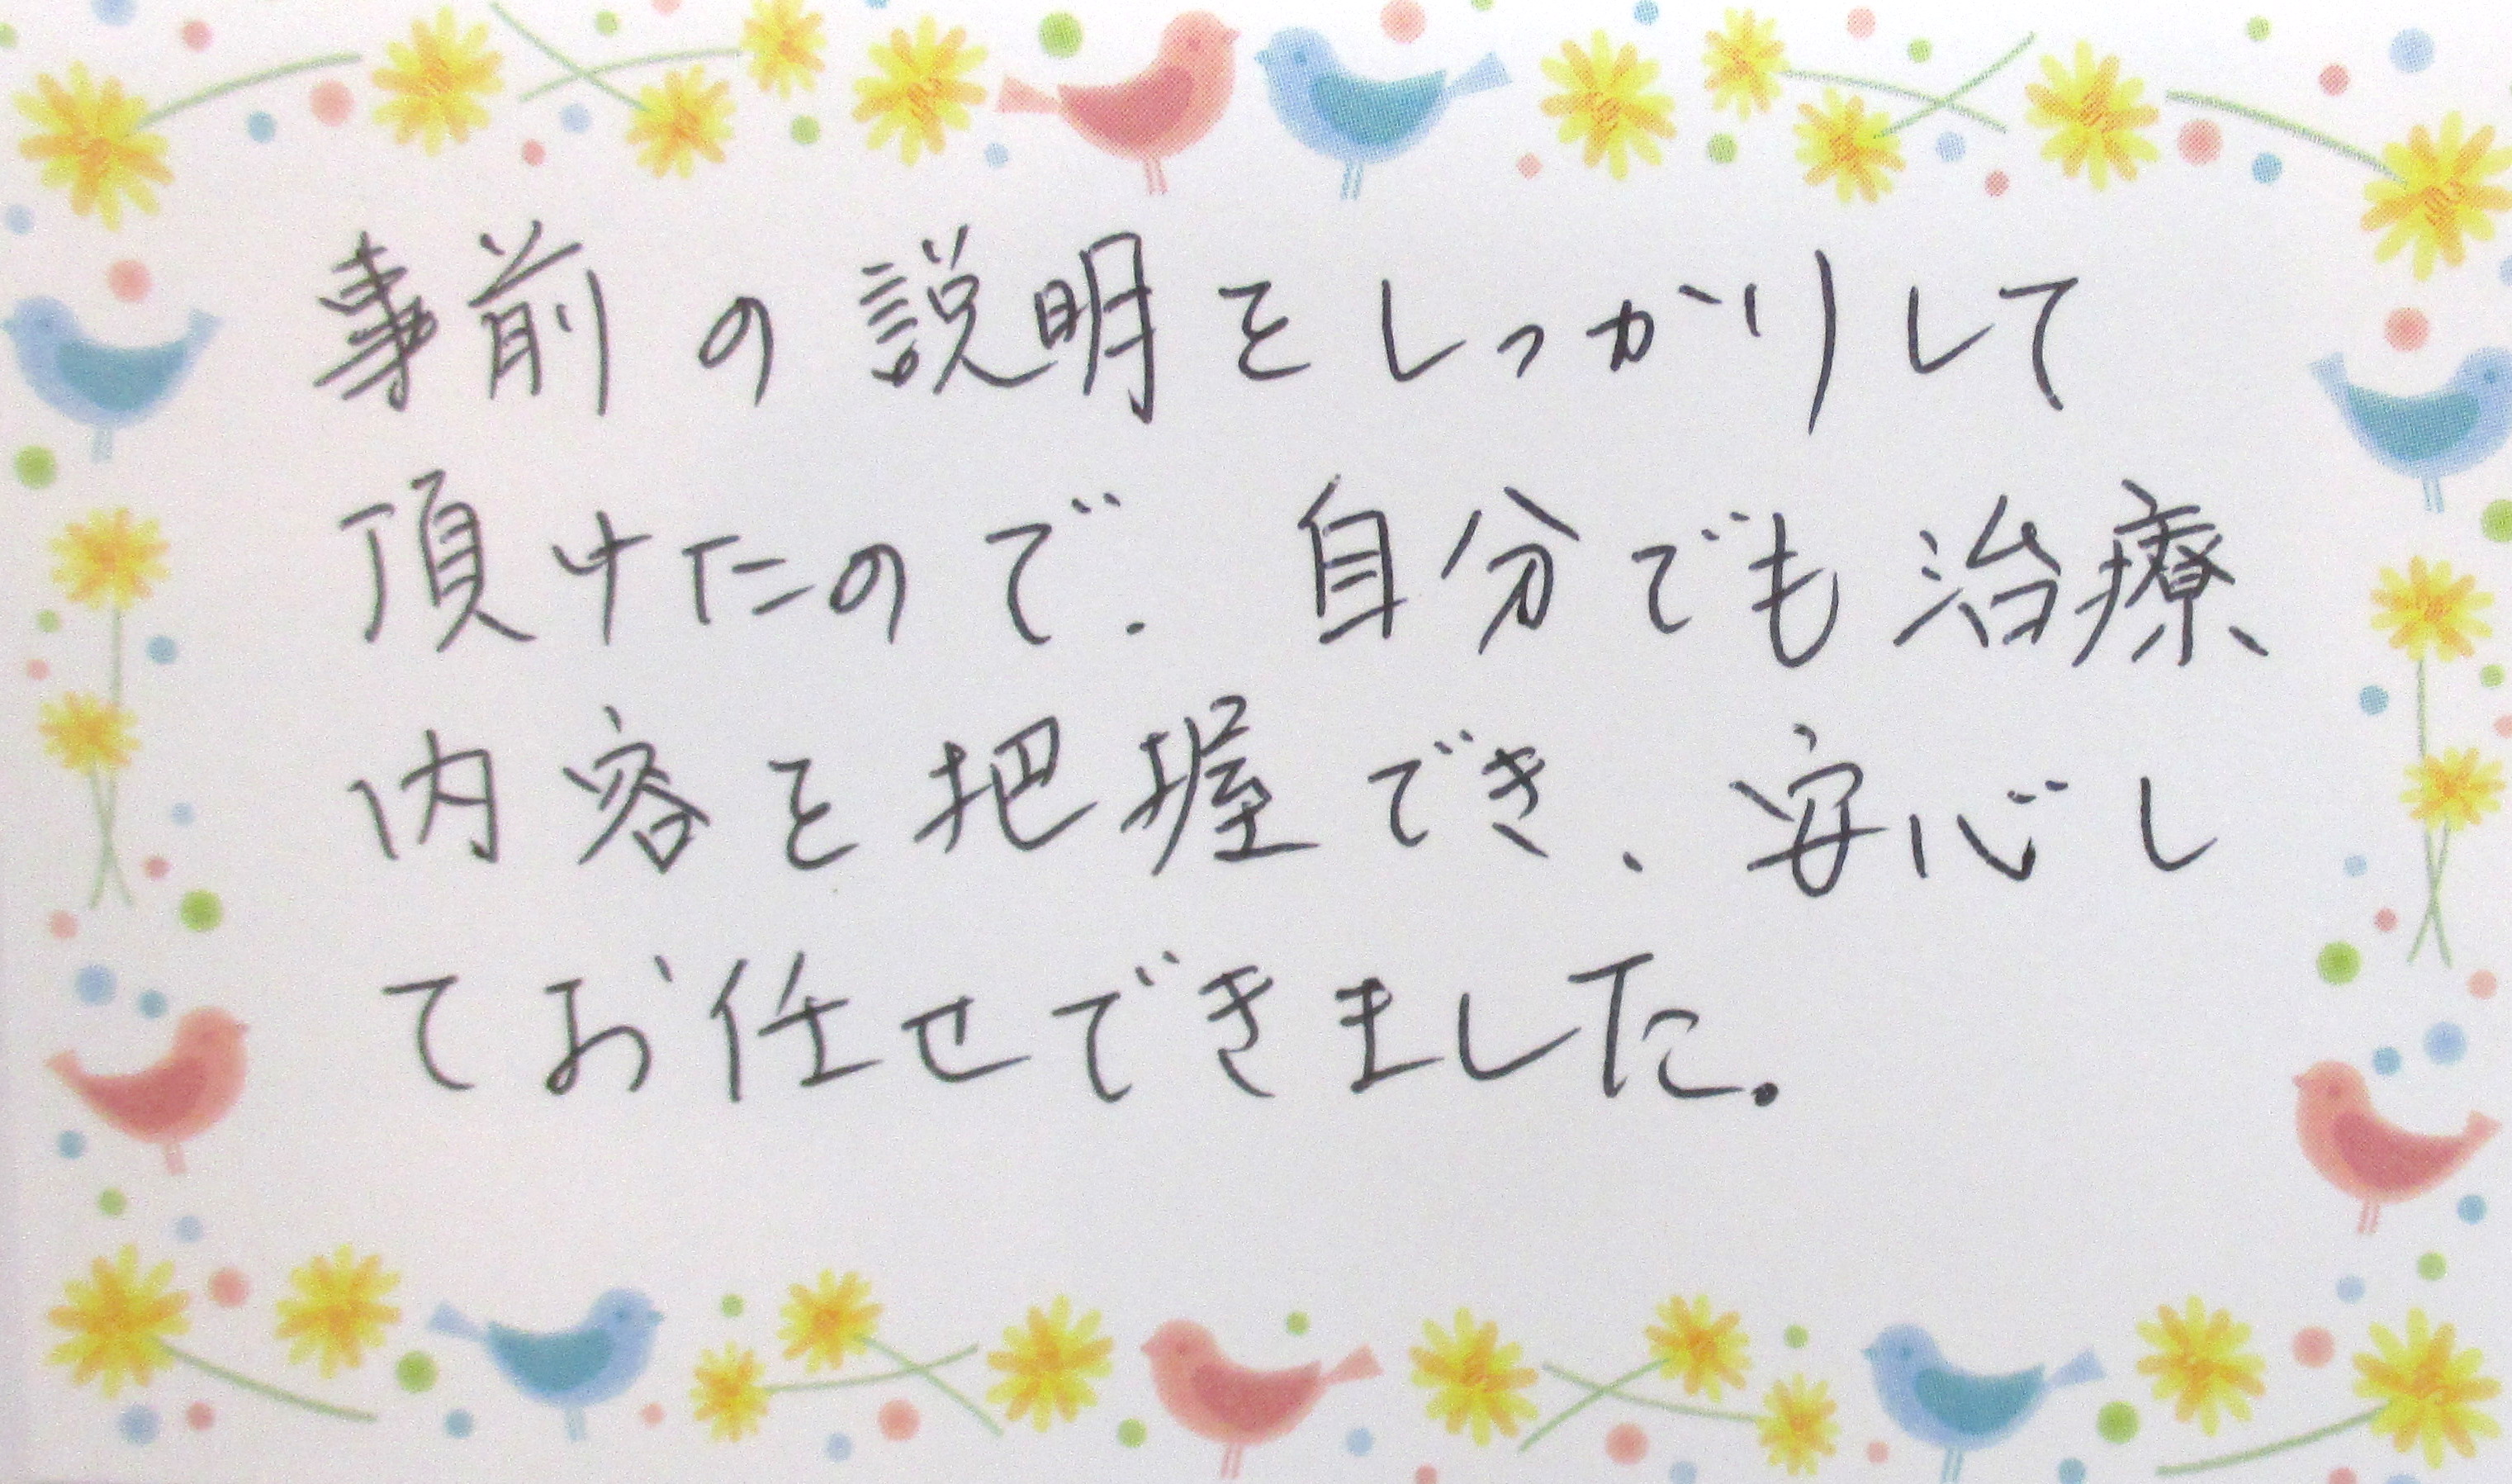 事前の説明をしっかりして
頂けたので、自分でも治療
内容を把握でき、安心し
てお任せできました。